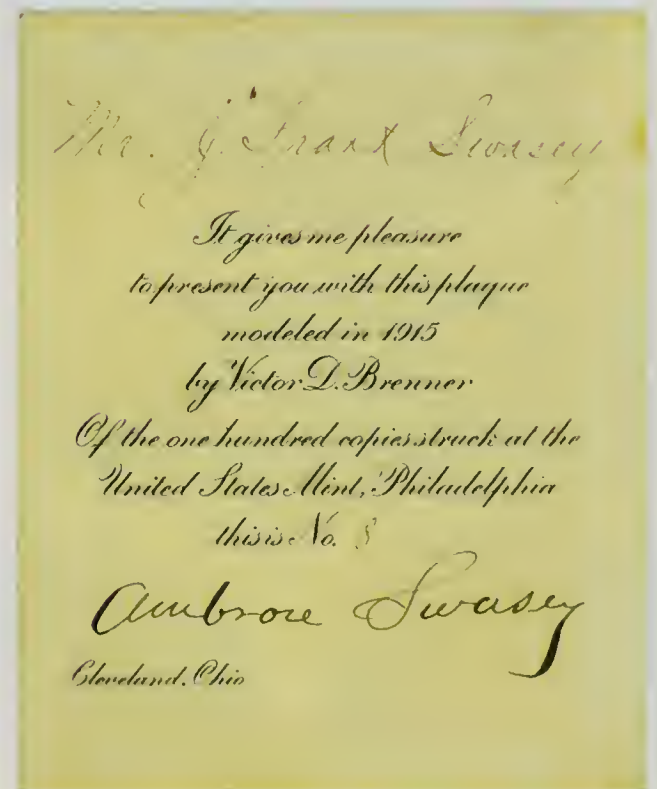 Mr. J. Frank Swasey
It gives me pleasure
to present you with this plaque
modeled in 1915
by Victor D. Brenner
Of the one hundred copies struck at the
United States Mint, Philadelphia
this is No. 8
Ambrose Swasey
Cleveland, Ohio